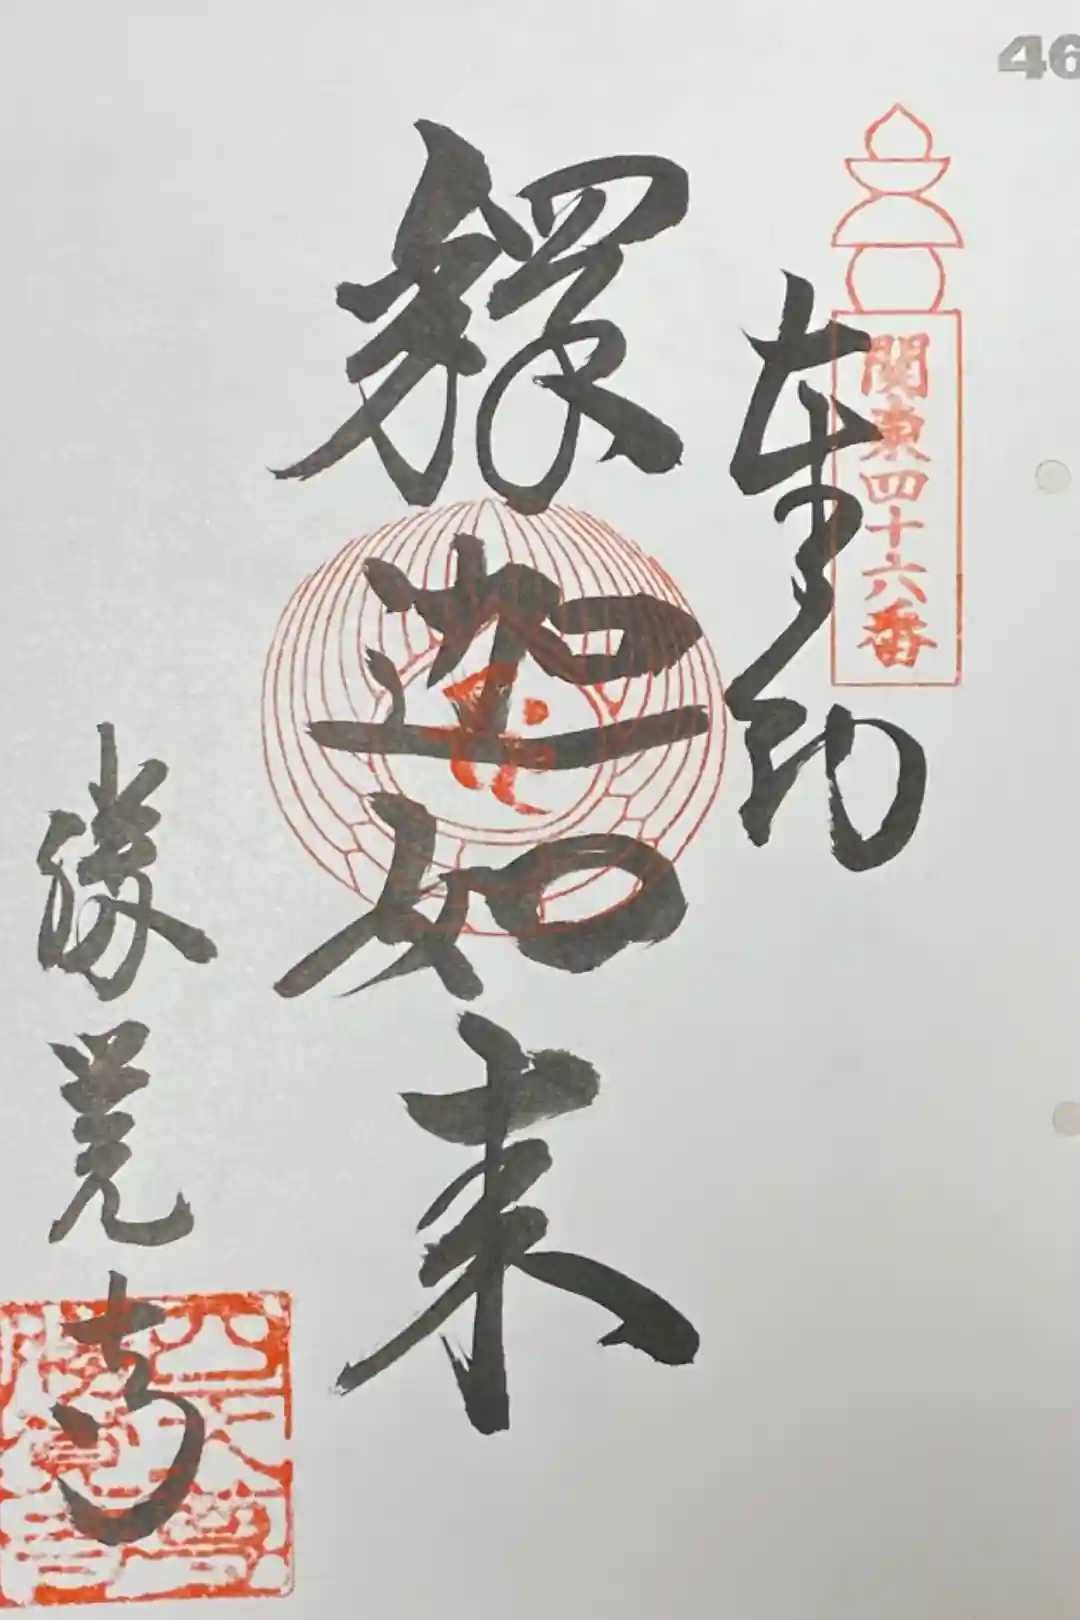 46
関東四十六番
奉拝
釋迦如来
勝覚寺